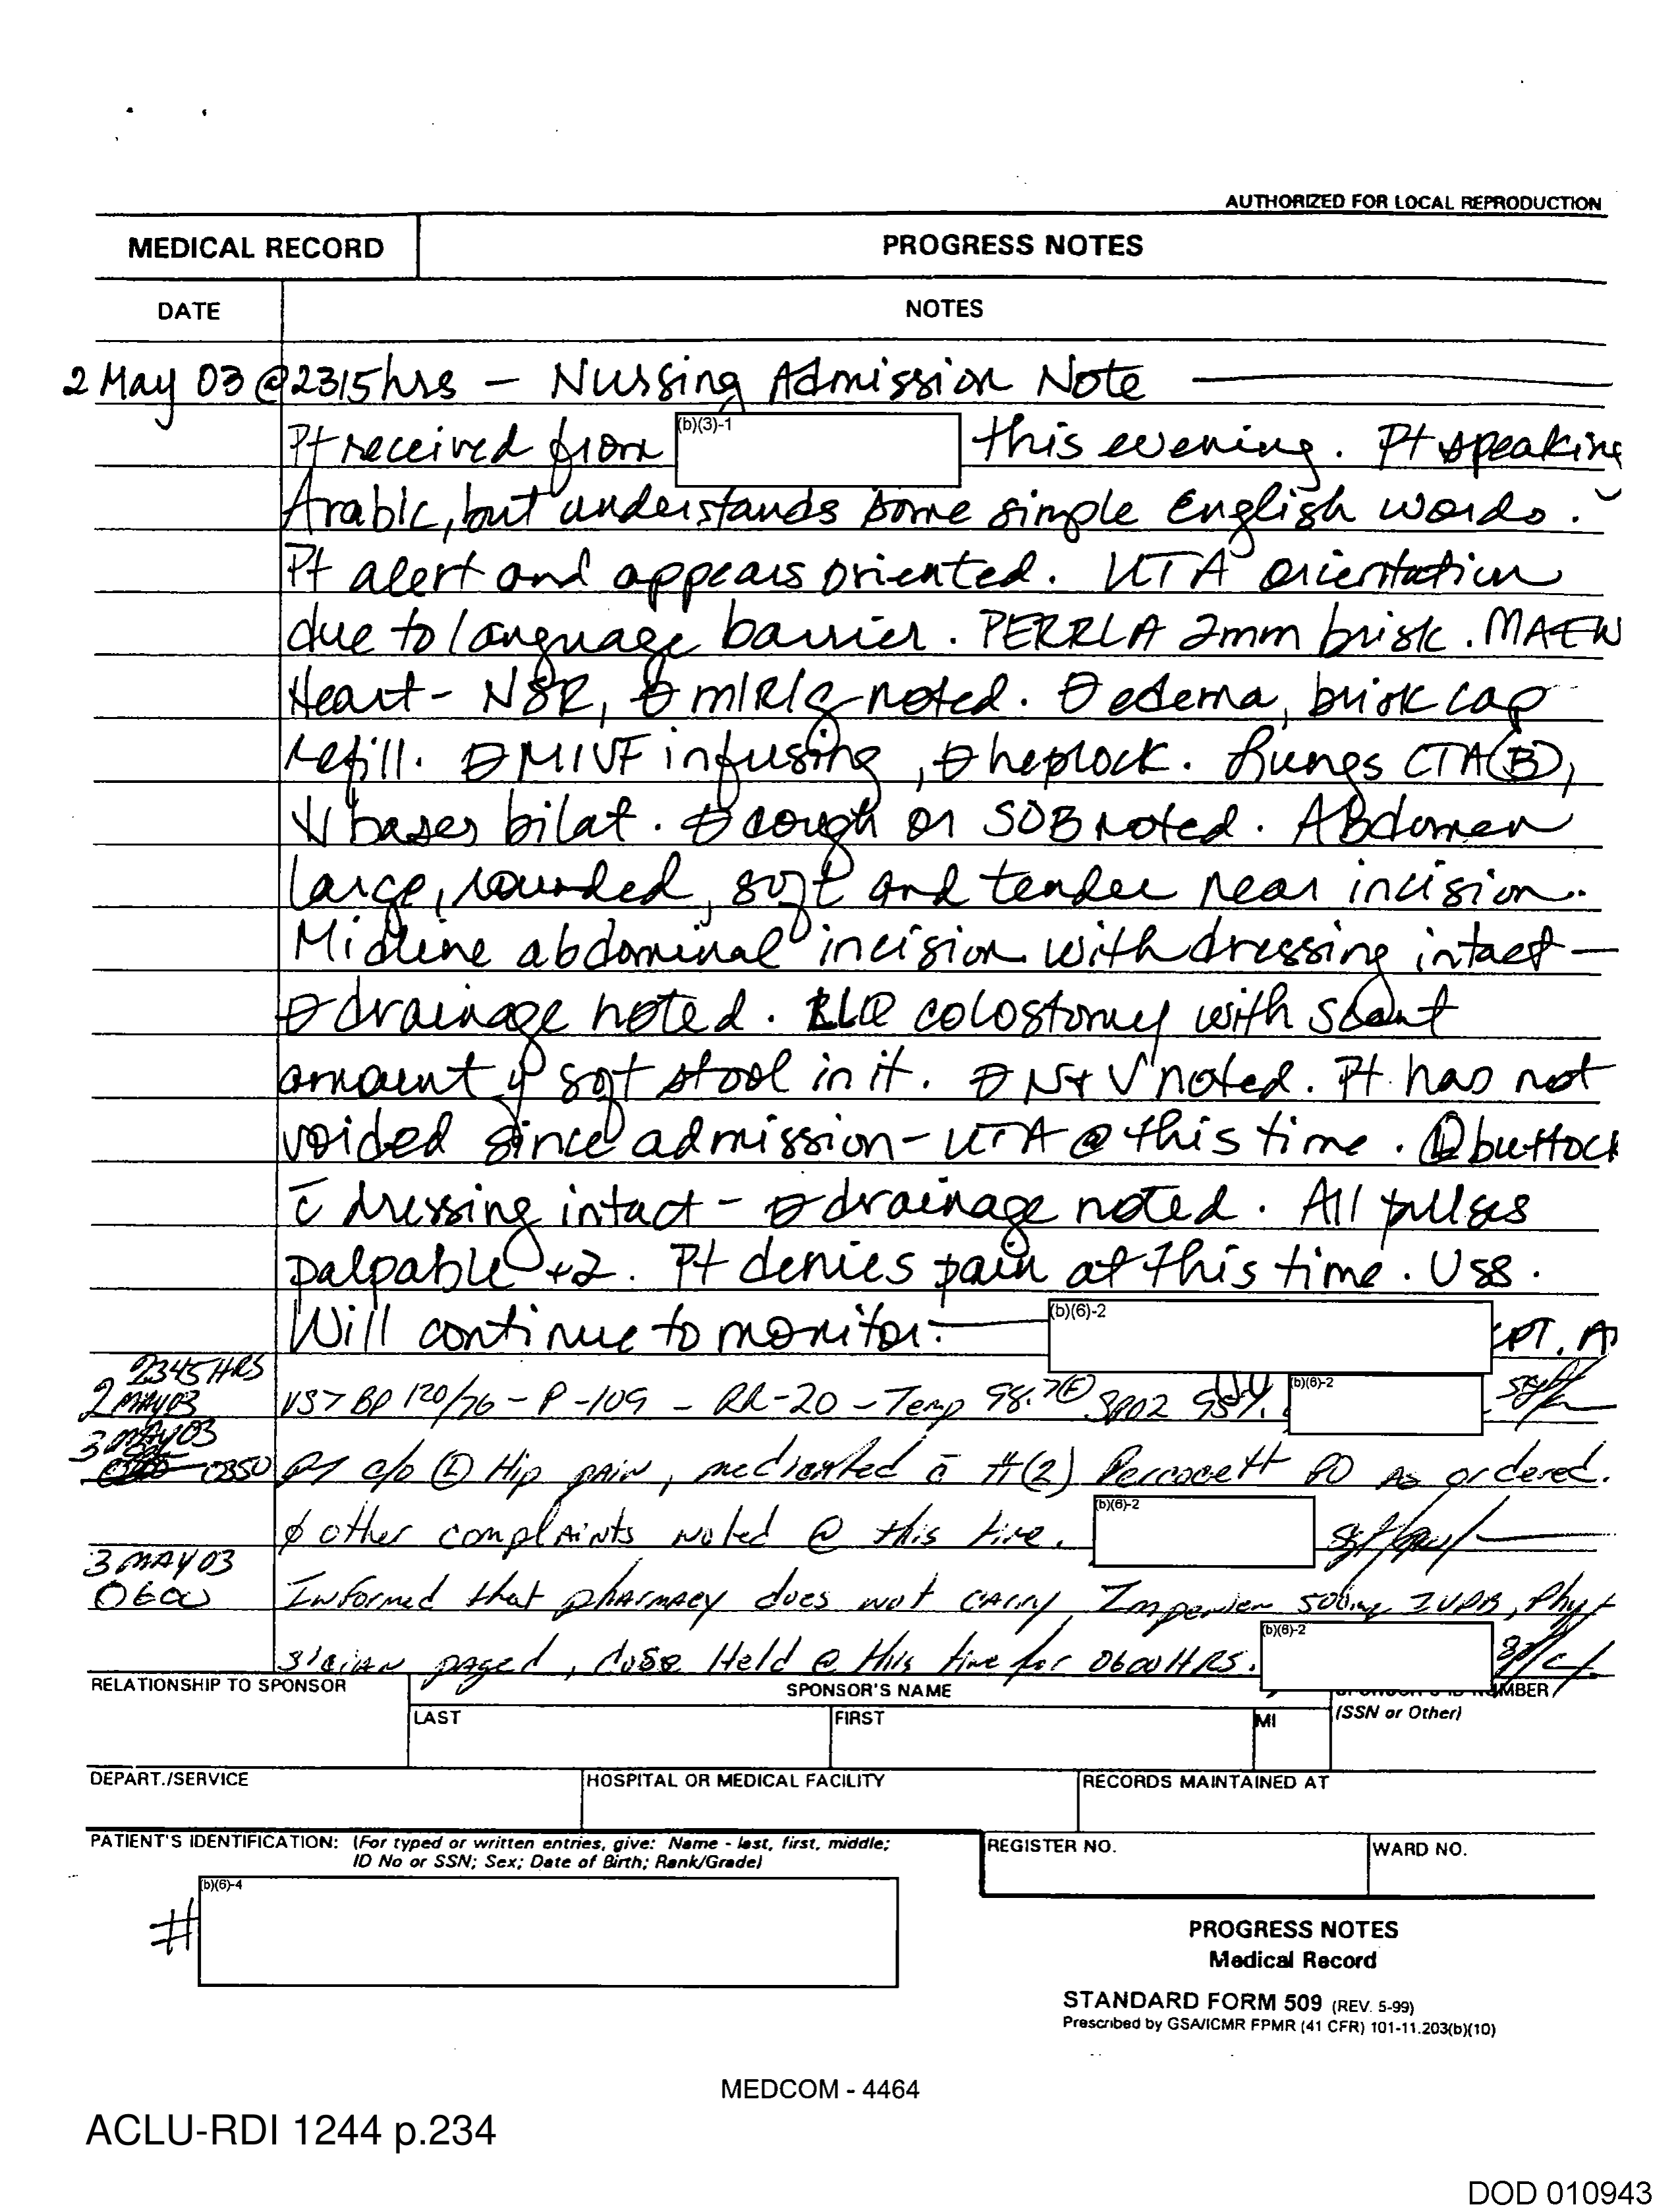 AUTHORIZED FOR LOCAL REPRODUCTION
MEDICAL RECORD
PROGRESS NOTES
DATE
NOTES
2 May 03 @ 2315 hrs – Nursing Admission Note
Pt received from (b)(3)-1 this evening. Pt speaking
Arabic, but understands some simple English words.
Pt alert and appears oriented. UTA orientation
due to language barrier. PERRLA 2mm brisk. MAEW
Heart - NSR, ∅ m/R/g noted. ∅ edema, brisk cap
refill. ∅ MIVF infusing, ∅ heplock. Lungs CTA(B),
↓ bases bilat. ∅ cough or SOB noted. Abdomen
large, rounded, soft and tender near incision.
Midline abdominal incision with dressing intact –
∅ drainage noted. LLQ colostomy with scant
amount of soft stool in it. ∅ N+V noted. Pt has not
voided since admission - UTA @ this time. Ⓛ buttock
c̄ dressing intact - ∅ drainage noted. All pulses
palpable +2. Pt denies pain at this time. VSS.
Will continue to monitor. (b)(6)-2 CPT. A
2345 HRS
2 MAY 03 VS> BP 120/76 - P -109 - RR-20 - Temp 98.7 Ⓕ SPO2 95%. (b)(6)-2
3 MAY 03
0350 PT c/o Ⓛ Hip pain, medicated c̄ #(2) Percocett PO As ordered.
∅ other complaints noted @ this time. (b)(6)-2
3 MAY 03
0600 Informed that pharmacy does not carry Imperien 500mg IVPB, Phy-
sician paged, dose Held @ this time for 0600 HRS. (b)(6)-2
RELATIONSHIP TO SPONSOR
SPONSOR'S NAME
LAST
FIRST
MI
SPONSOR'S ID NUMBER
(SSN or Other)
DEPART./SERVICE
HOSPITAL OR MEDICAL FACILITY
RECORDS MAINTAINED AT
PATIENT'S IDENTIFICATION: (For typed or written entries, give: Name - last, first, middle;
ID No or SSN; Sex; Date of Birth; Rank/Grade)
REGISTER NO.
WARD NO.
# (b)(6)-4
PROGRESS NOTES
Medical Record
STANDARD FORM 509 (REV. 5-99)
Prescribed by GSA/ICMR FPMR (41 CFR) 101-11.203(b)(10)
MEDCOM - 4464
ACLU-RDI 1244 p.234
DOD 010943